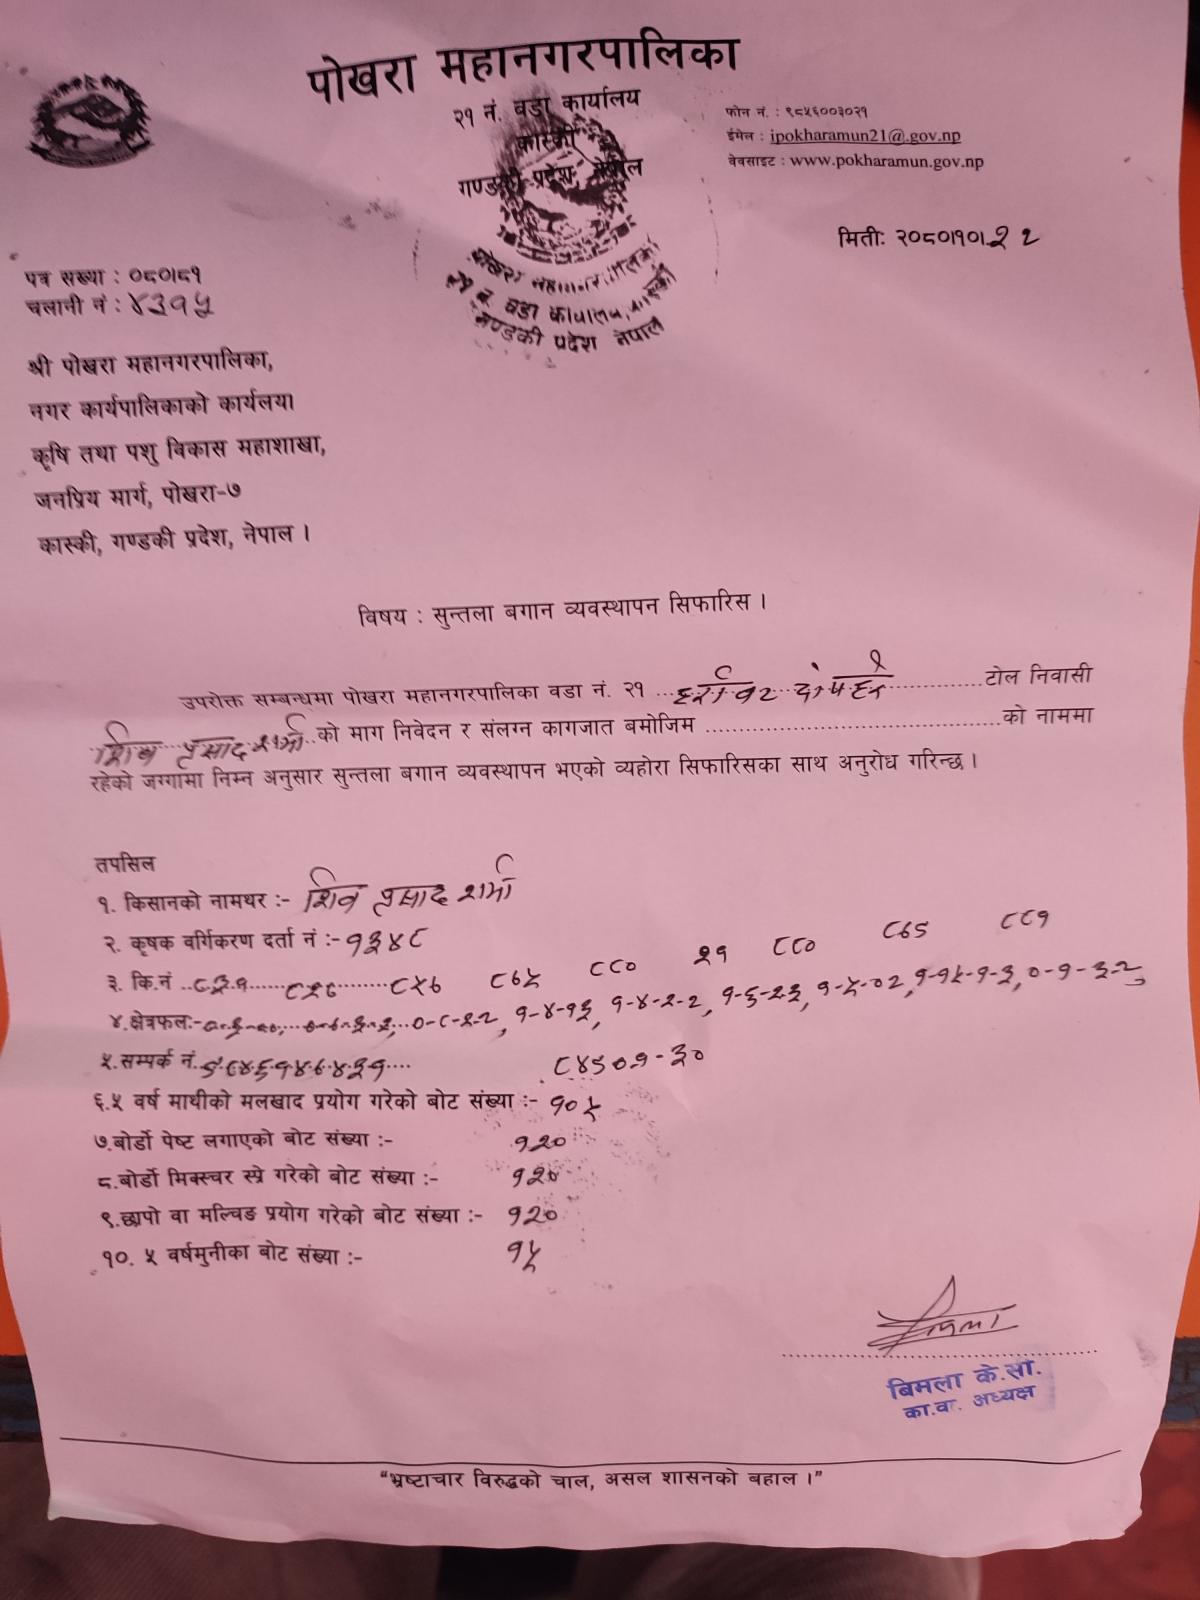 पोखरा महानगरपालिका
२१ नं. वडा कार्यालय
कास्की
गण्डकी प्रदेश, नेपाल
फोन नं. : ९८५६००३०२१
ईमेल : ipokharamun21@.gov.np
वेवसाइट : www.pokharamun.gov.np
पोखरा महानगरपालिका
२१ नं. वडा कार्यालय, कास्की
गण्डकी प्रदेश नेपाल
मिती: २०८०।१०।२२
पत्र सख्या : ०८०।८१
चलानी नं : ४३१५
श्री पोखरा महानगरपालिका,
नगर कार्यपालिकाको कार्यलय।
कृषि तथा पशु विकास महाशाखा,
जनप्रिय मार्ग, पोखरा-७
कास्की, गण्डकी प्रदेश, नेपाल ।
विषय : सुन्तला बगान व्यवस्थापन सिफारिस ।
उपरोक्त सम्बन्धमा पोखरा महानगरपालिका वडा नं. २१ टोल निवासी
शिव प्रसाद शर्मा को माग निवेदन र संलग्न कागजात बमोजिम ........................................को नाममा
रहेको जग्गामा निम्न अनुसार सुन्तला बगान व्यवस्थापन भएको व्यहोरा सिफारिसका साथ अनुरोध गरिन्छ ।
तपसिल
१. किसानको नामथर :- शिव प्रसाद शर्मा
२. कृषक वर्गिकरण दर्ता नं :- १३४८
३. कि.नं ८८० २१ ८८० ८८१
४. क्षेत्रफल:- ०-८-२-२, १-४-१३, १-४-२-२, १-६-२३, १-५-०२, १-१५-१-३, ०-१-३-२
५. सम्पर्क नं.
६. ५ वर्ष माथीको मलखाद प्रयोग गरेको बोट संख्या :- १०५
७. बोर्डो पेष्ट लगाएको बोट संख्या :- १२०
८. बोर्डो मिक्स्चर स्प्रे गरेको बोट संख्या :- १२०
९. छापो वा मल्चिङ प्रयोग गरेको बोट संख्या :- १२०
१०. ५ वर्षमुनीका बोट संख्या :- १५
बिमला के.सी.
का.वा. अध्यक्ष
“भ्रष्टाचार विरुद्धको चाल, असल शासनको बहाल ।”